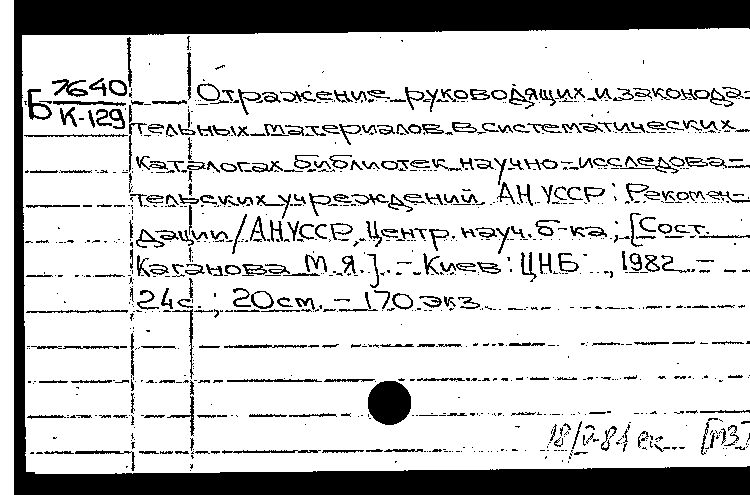 Б 7640
К-129
Отражение руководящих и законода-
тельных материалов в систематических
каталогах библиотек научно-исследова-
тельских учреждений АН УССР: Рекомен-
дации/АН УССР, Центр. науч. б-ка; [Сост.
Каганова М.Я.]. - Киев: ЦНБ, 1982 -
24с.; 20см. - 170 экз
18/V-84 ек [МЗ]